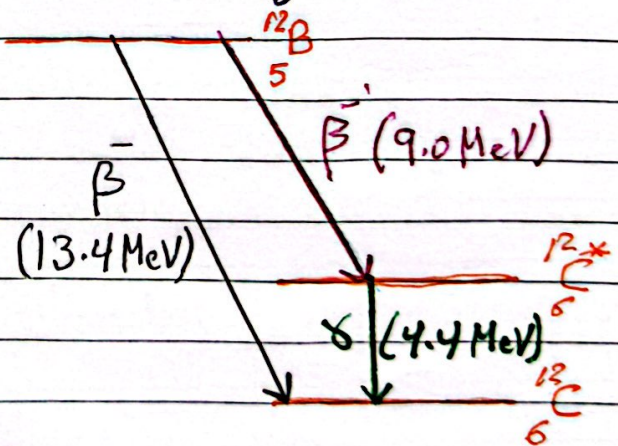 ¹²₅B
β⁻ (9.0 MeV)
β⁻
(13.4 MeV)
¹²₆C*
γ (4.4 MeV)
¹²₆C